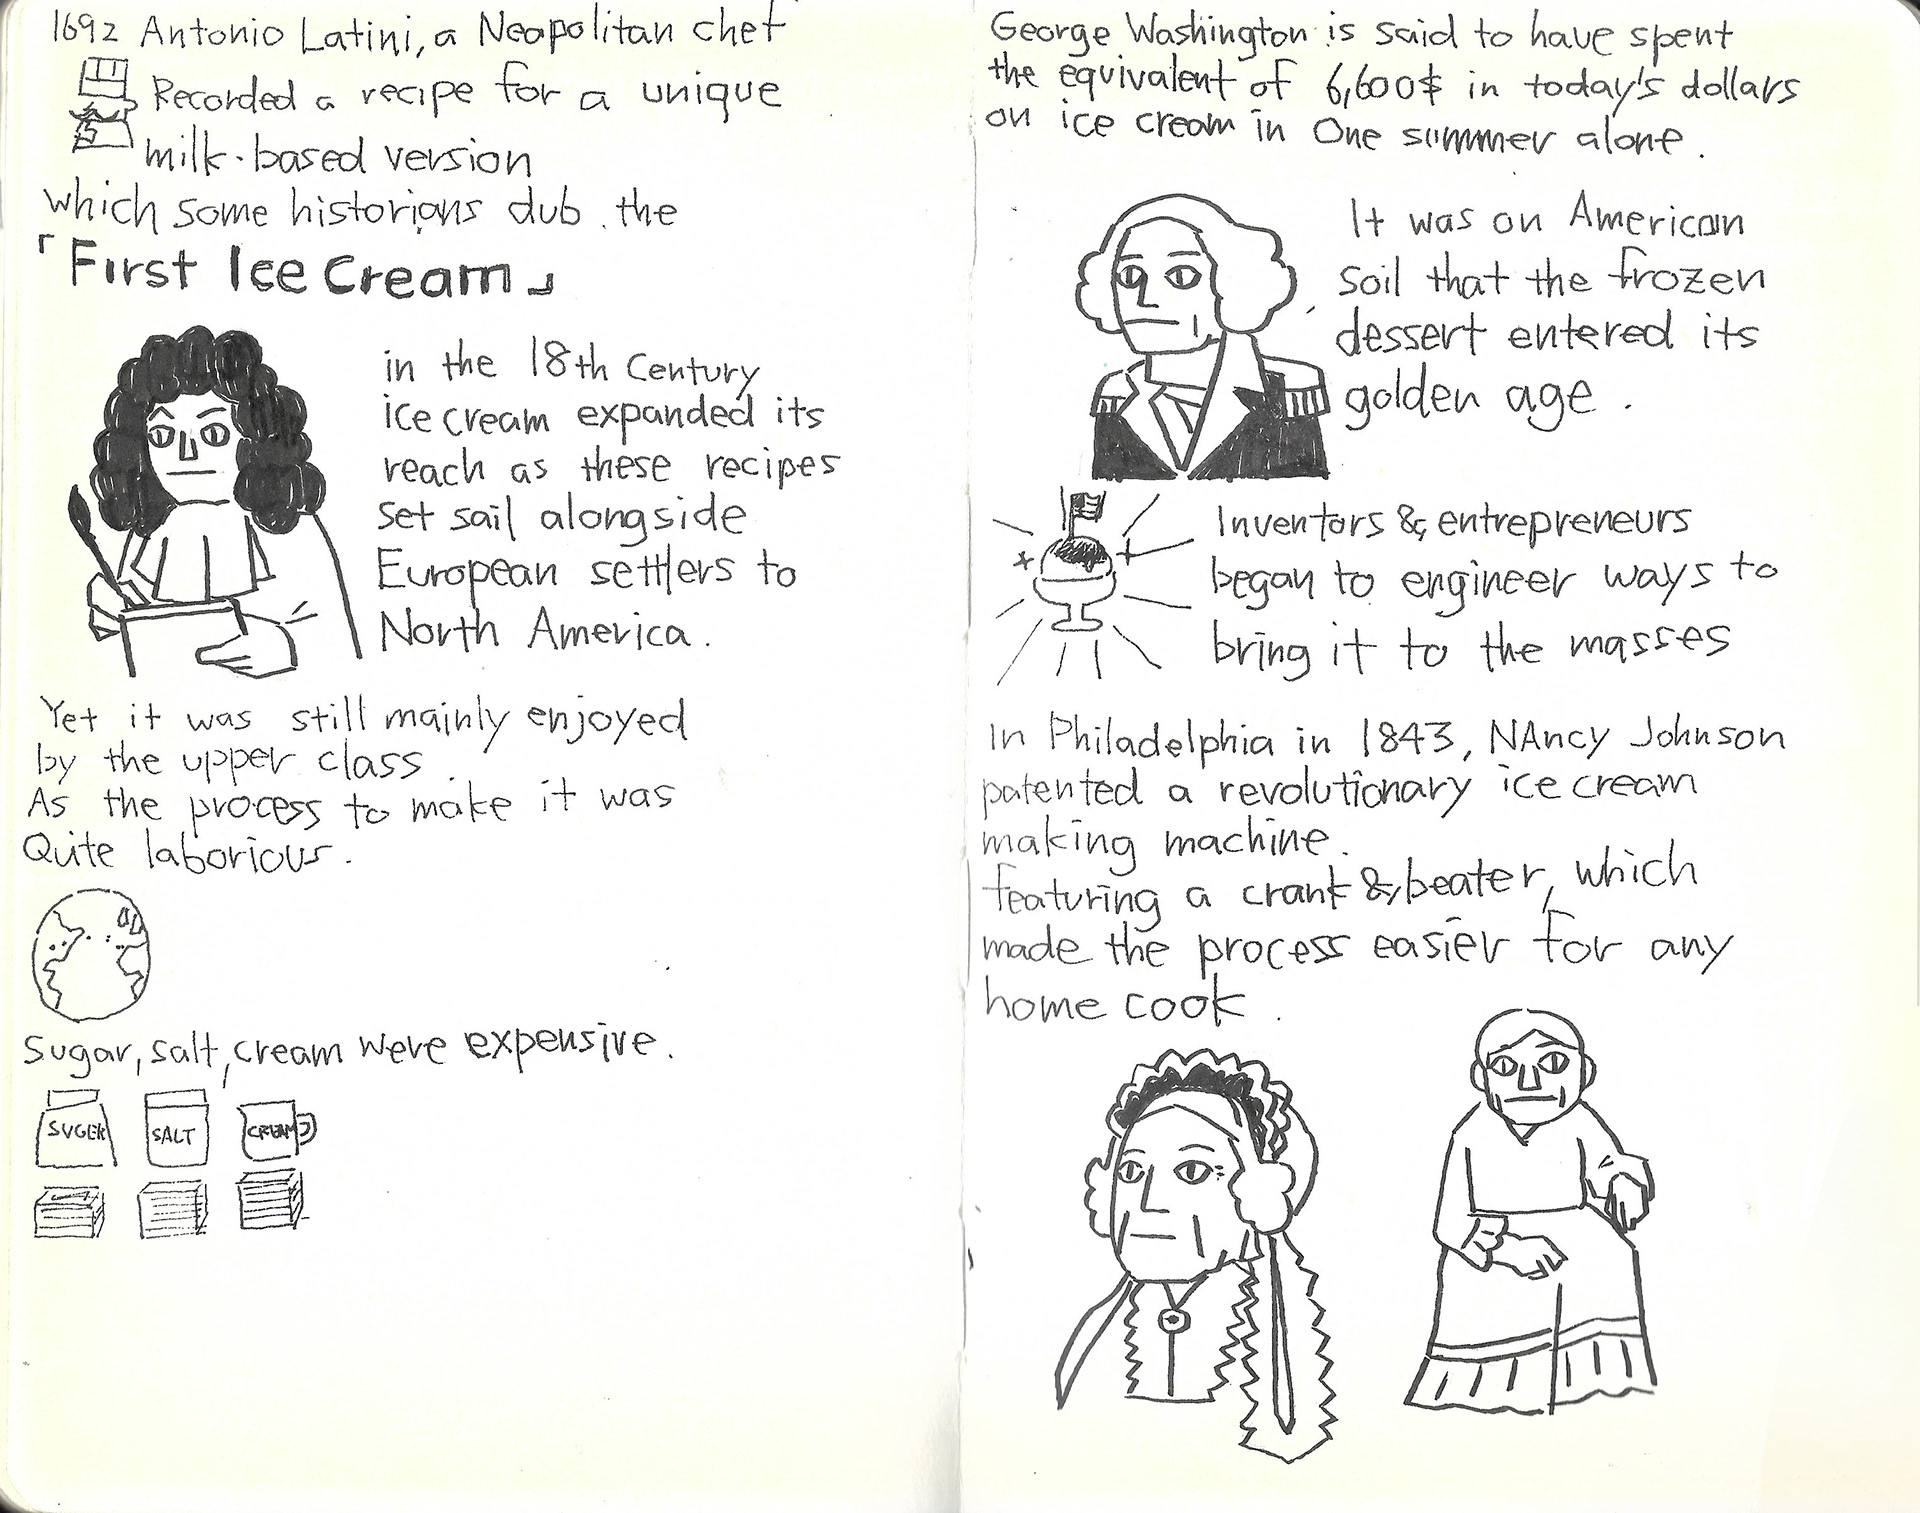 1692 Antonio Latini, a Neapolitan chef
Recorded a recipe for a unique
milk-based version
which some historians dub the
「First Ice Cream」
in the 18th Century
ice cream expanded its
reach as these recipes
set sail alongside
European settlers to
North America.
Yet it was still mainly enjoyed
by the upper class.
As the process to make it was
Quite laborious.
Sugar, salt, cream were expensive.
SUGER SALT CREAM
George Washington is said to have spent
the equivalent of 6,600$ in today's dollars
on ice cream in One summer alone.
It was on American
soil that the frozen
dessert entered its
golden age.
Inventors & entrepreneurs
began to engineer ways to
bring it to the masses
In Philadelphia in 1843, NAncy Johnson
patented a revolutionary ice cream
making machine.
featuring a crank & beater, which
made the process easier for any
home cook.